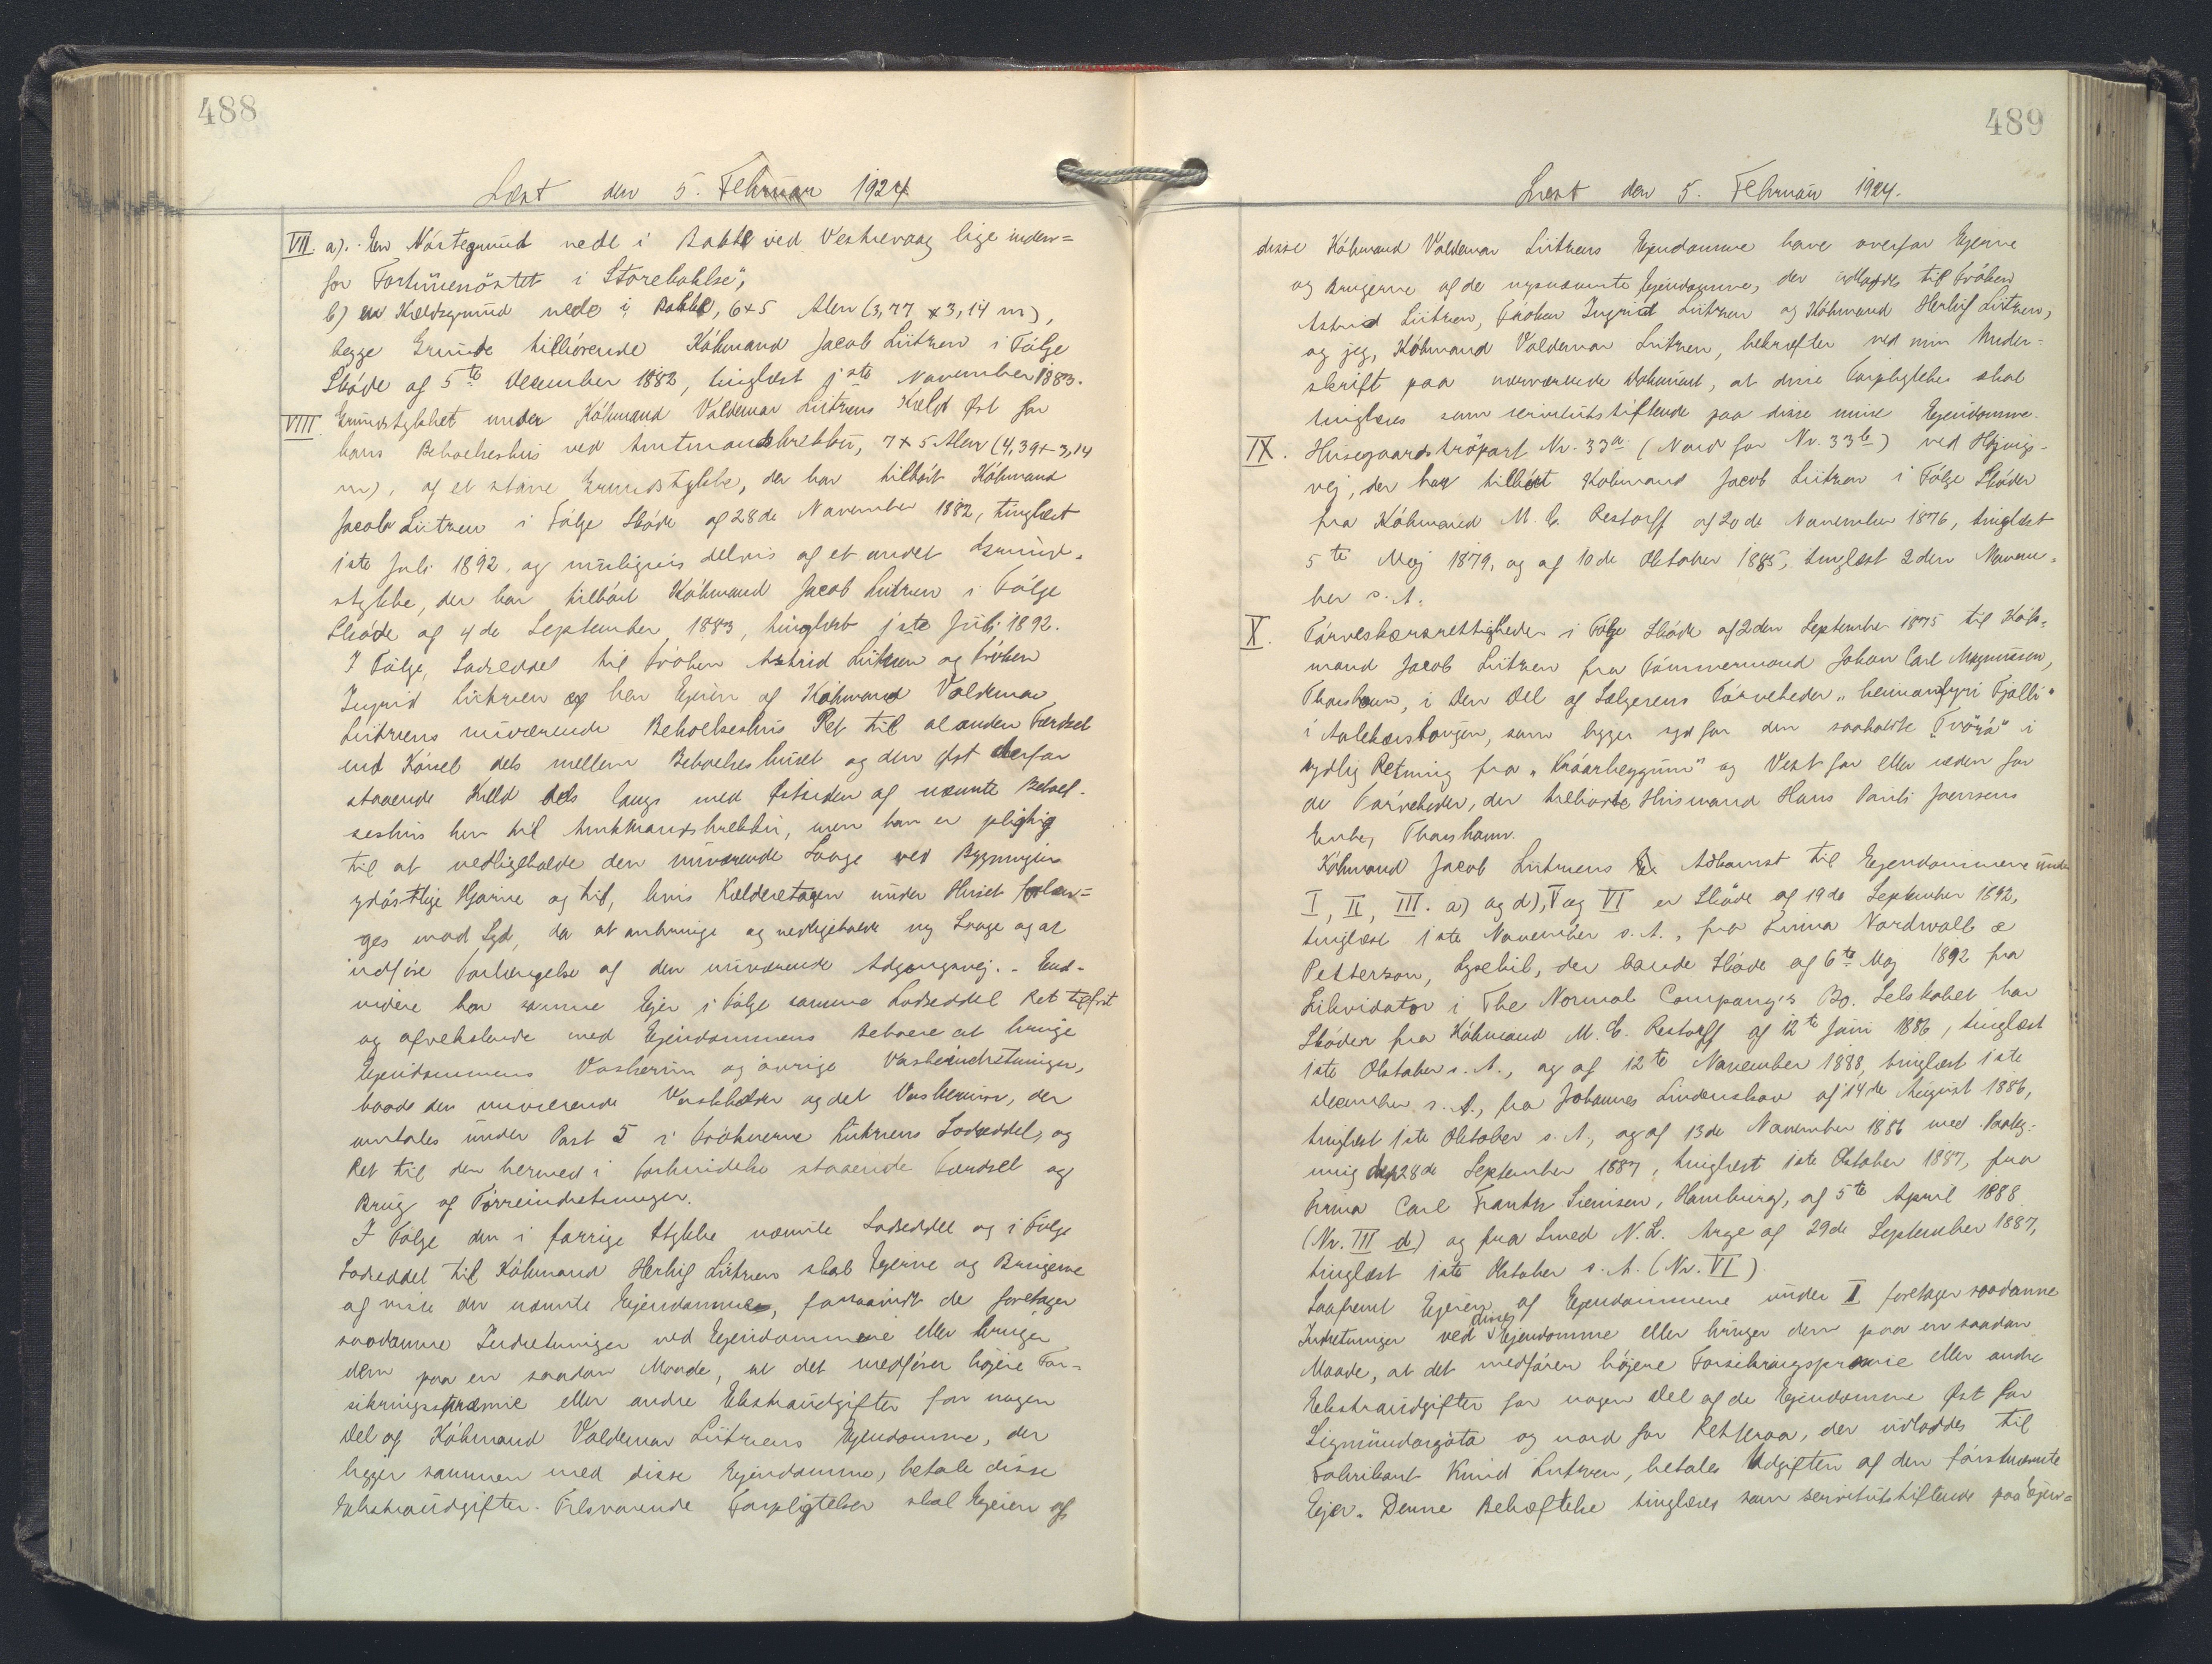 488
Læst den 5. Februar 1924
VII. a). En Nóstegrund nede i Bakke ved Vestrevaag lige inden=
for Fortünenöstet i Storebakke;
b) en Kældsgrund nede i Bakke, 6 x 5 Alen (3,77 x 3,14 m),
begge Grunde tilhörende Kóbmand Jacob Lützen i Fölge
Skóde af 5te December 1882, tinglæst 1ste November 1883.
VIII Grundstykket under Kóbmand Valdemar Lützens Kæld Øst for
hans Beboelseshus ved Amtmandsbrekku, 7 x 5 Alen (4,39 x 3,14
m), af et större Grundstykke, der har tilhört Kóbmand
Jacob Lützen i Fölge Skóde af 28de November 1882, tinglæst
1ste Juli 1892, og muligvis delvis af et andet Grund=
stykke, der har tilhört Kóbmand Jacob Lützen i Fölge
Skóde af 4de September 1883, tinglæst 1ste Juli 1892.
I Fölge Lodseddel til Fróken Astrid Lützen og Fróken
Ingrid Lützen har Ejeren af Kóbmand Valdemar
Lützens nuværende Beboelseshus Ret til al anden Færdsel
end Körsel dels mellem Beboelseshuset og den Øst derfor
staaende Kæld dels langs med Østsiden af nævnte Beboel-
seshus hen til Amtmandsbrekku, men han er pligtig
til at vedligeholde den nuværende Laage ved Bygningens
sydöstlige Hjörne og til, hvis Kælderetagen under Huset forlæn=
ges mod Syd, da at anbringe og vedligeholde ny Laage og at
udföre Forlængelse af den nuværende Adgangsvej. - End-
videre har samme Ejer i Fölge samme Lodseddel Ret til frit
og afvekslende med Ejendommens Beboere at bruge
Ejendommens Vaskerum og övrige Vaskeindretninger,
baade den nuværende Vaskkælder og det Vaskerum, der
omtales under Post 5 i Fróknerne Lützens Lodseddel, og
Ret til den hermed i Forbindelse staaende Færdsel og
Brug af Törreindretninger.
I Fölge den i forrige Stykke nævnte Lodseddel og i Fölge
Lodseddel til Kóbmand Herluf Lützen skal Ejerne og Brugerne
af disse der nævnte Ejendomme, forsaavidt de foretager
saadanne Indretninger ved Ejendommene eller bruger
dem paa en saadan Maade, at det medförer höjere For=
sikringspræmie eller andre Ekstraudgifter for nogen
Del af Kóbmand Valdemar Lützens Ejendomme, der
ligger sammen med disse Ejendomme, betale disse
Ekstraudgifter. Tilsvarende Forpligtelser skal Ejeren af
489
Læst den 5. Februar 1924.
disse Kóbmand Valdemar Lützens Ejendomme have overfor Ejerne
og Brugerne af de nysnævnte Ejendomme, der udlagdes til Fróken
Astrid Lützen, Fróken Ingrid Lützen og Kóbmand Herluf Lützen,
og jeg, Kóbmand Valdemar Lützen, bekræfter ved min Under-
skrift paa nærværende Dokument, at disse Forpligtelser skal
tinglæses som servitutstiftende paa disse mine Ejendomme.
IX. Husegaardströpart Nr. 33a (Nord for Nr. 33b) ved Højvigs-
vej, der har tilhört Kobmand Jacob Lützen i Fölge Skóder
fra Kóbmand M. C. Restorff af 20de November 1876, tinglæst
5te Maj 1879, og af 10de Oktober 1885, tinglæst 2den Novem=
ber s. A.
X. Törveskærsrettigheder i Fölge Skóde af 2den September 1875 til Kób=
mand Jacob Lützen fra Tömmermand Johan Carl Magnussen,
Thorshavn, i den Del af Sælgerens Törveheder "heimanfyri Fjalli"
i Aalekærshaugen, som ligger syd for den saakaldte "Tvörá" i
sydlig Retning fra "Kráarheyggjum" og Vest for eller neden for
de Törveheder, der tilhörte Husmand Hans Pauli Joensens
Enke, Thorshavn.
Kóbmand Jacob Lützens Adkomst til Ejendommene under
I, II, III. a) og d), V og VI er Skóde af 19de September 1892,
tinglæst 1ste November s. A., fra Firma Nordwall &
Petterson, Lysekil, der havde Skóde af 6te Maj 1892 fra
Likvidator i The Normal Company's Bo. Selskabet har
Skóder fra Kóbmand M. C. Restorff af 12te Juni 1886, tinglæst
1ste Oktober s. A., og af 12te November 1888, tinglæst 1ste
December s. A., fra Johannes Lindenskov af 14de August 1886,
tinglæst 1ste Oktober s. A., og af 13de November 1886 med Paateg-
ning 28de September 1887, tinglæst 1ste Oktober 1887, fra
Firma Carl Frantz Siemsen, Hamburg, af 5te April 1888
(Nr. III d) og fra Smed N. L. Arge af 29de September 1887,
tinglæst 1ste Oktober s. A. (Nr. VI).
Saafremt Ejeren af Ejendommene under II foretager saadanne
Indretninger ved disse Ejendomme eller bruger dem paa en saadan
Maade, at det medfører höjere Forsikringspræmie eller andre
Ekstraudgifter for nogen Del af de Ejendomme Øst for
Sigmundargöta og nord for Retteraa, der udlagdes til
Fabrikant Knud Lützen, betales Udgiften af den förstnævnte
Ejer. Denne Behæftelse tinglæses som servitutstiftende paa Ejen=